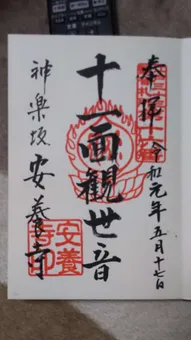 奉拝 令和元年五月十七日
十一面観世音
神楽坂 安養寺
安養寺印